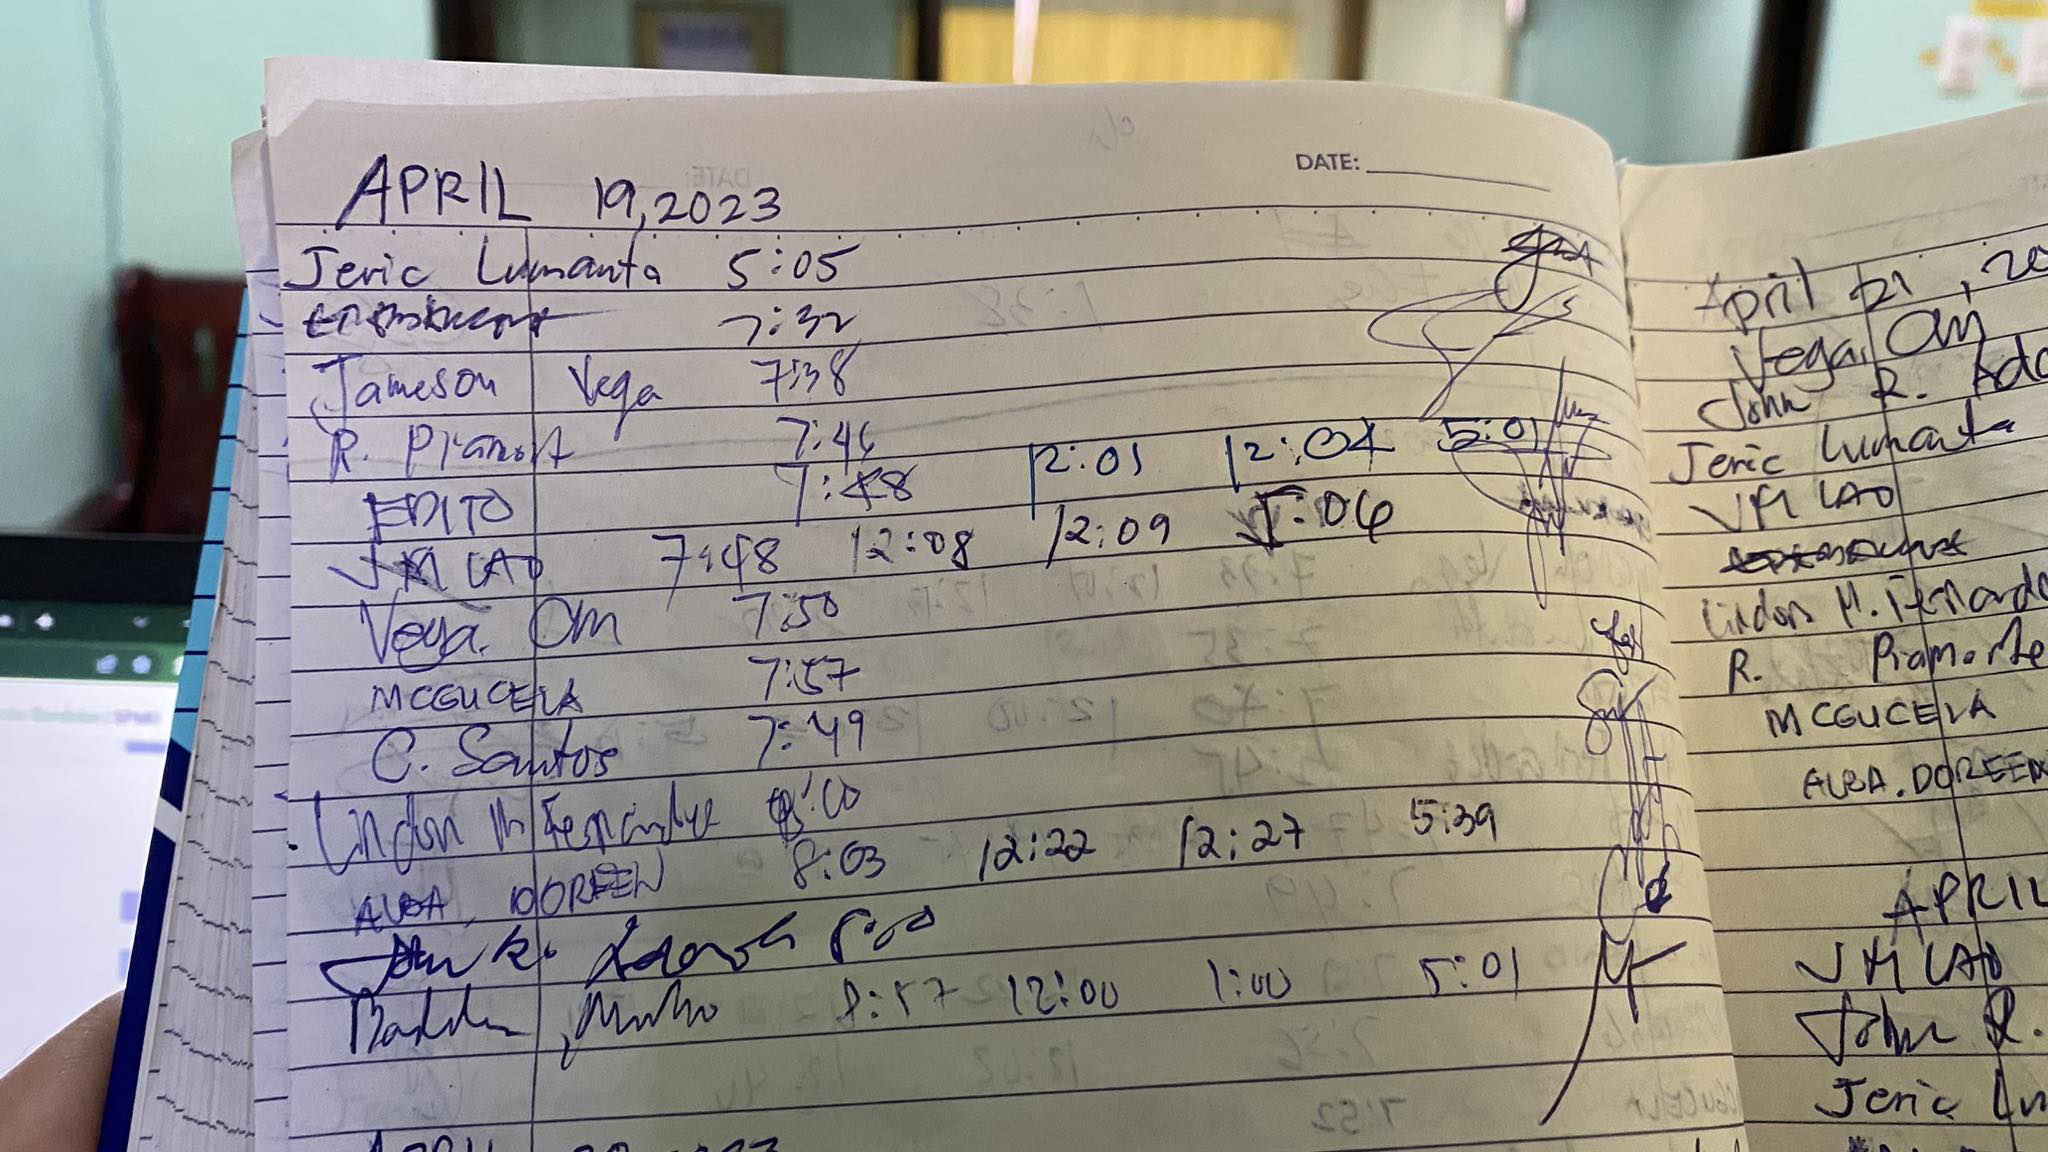 DATE:
APRIL 19, 2023
Jeric Lumanta 5:05
7:32
Jameson Vega 7:38
R. Piamonte 7:46
EDITO 7:48 12:01 12:04 5:01
JM LAO 7:48 12:08 12:09 5:06
Vega. Om 7:50
MCGUCELA 7:57
C. Santos 7:49
Lindon M Fernandez 8:00
ALBA, DOREEN 8:03 12:22 12:27 5:39
John R.
8:57 12:00 1:00 5:01
APRIL 2023
April 21, 20
Vega. Om
John R. Ado
Jeric Lumanta
JM LAO
Lindon M. Fernande
R. Piamonte
MCGUCELA
ALBA. DOREEN
APRIL
JM LAO
John R.
Jeric Lu